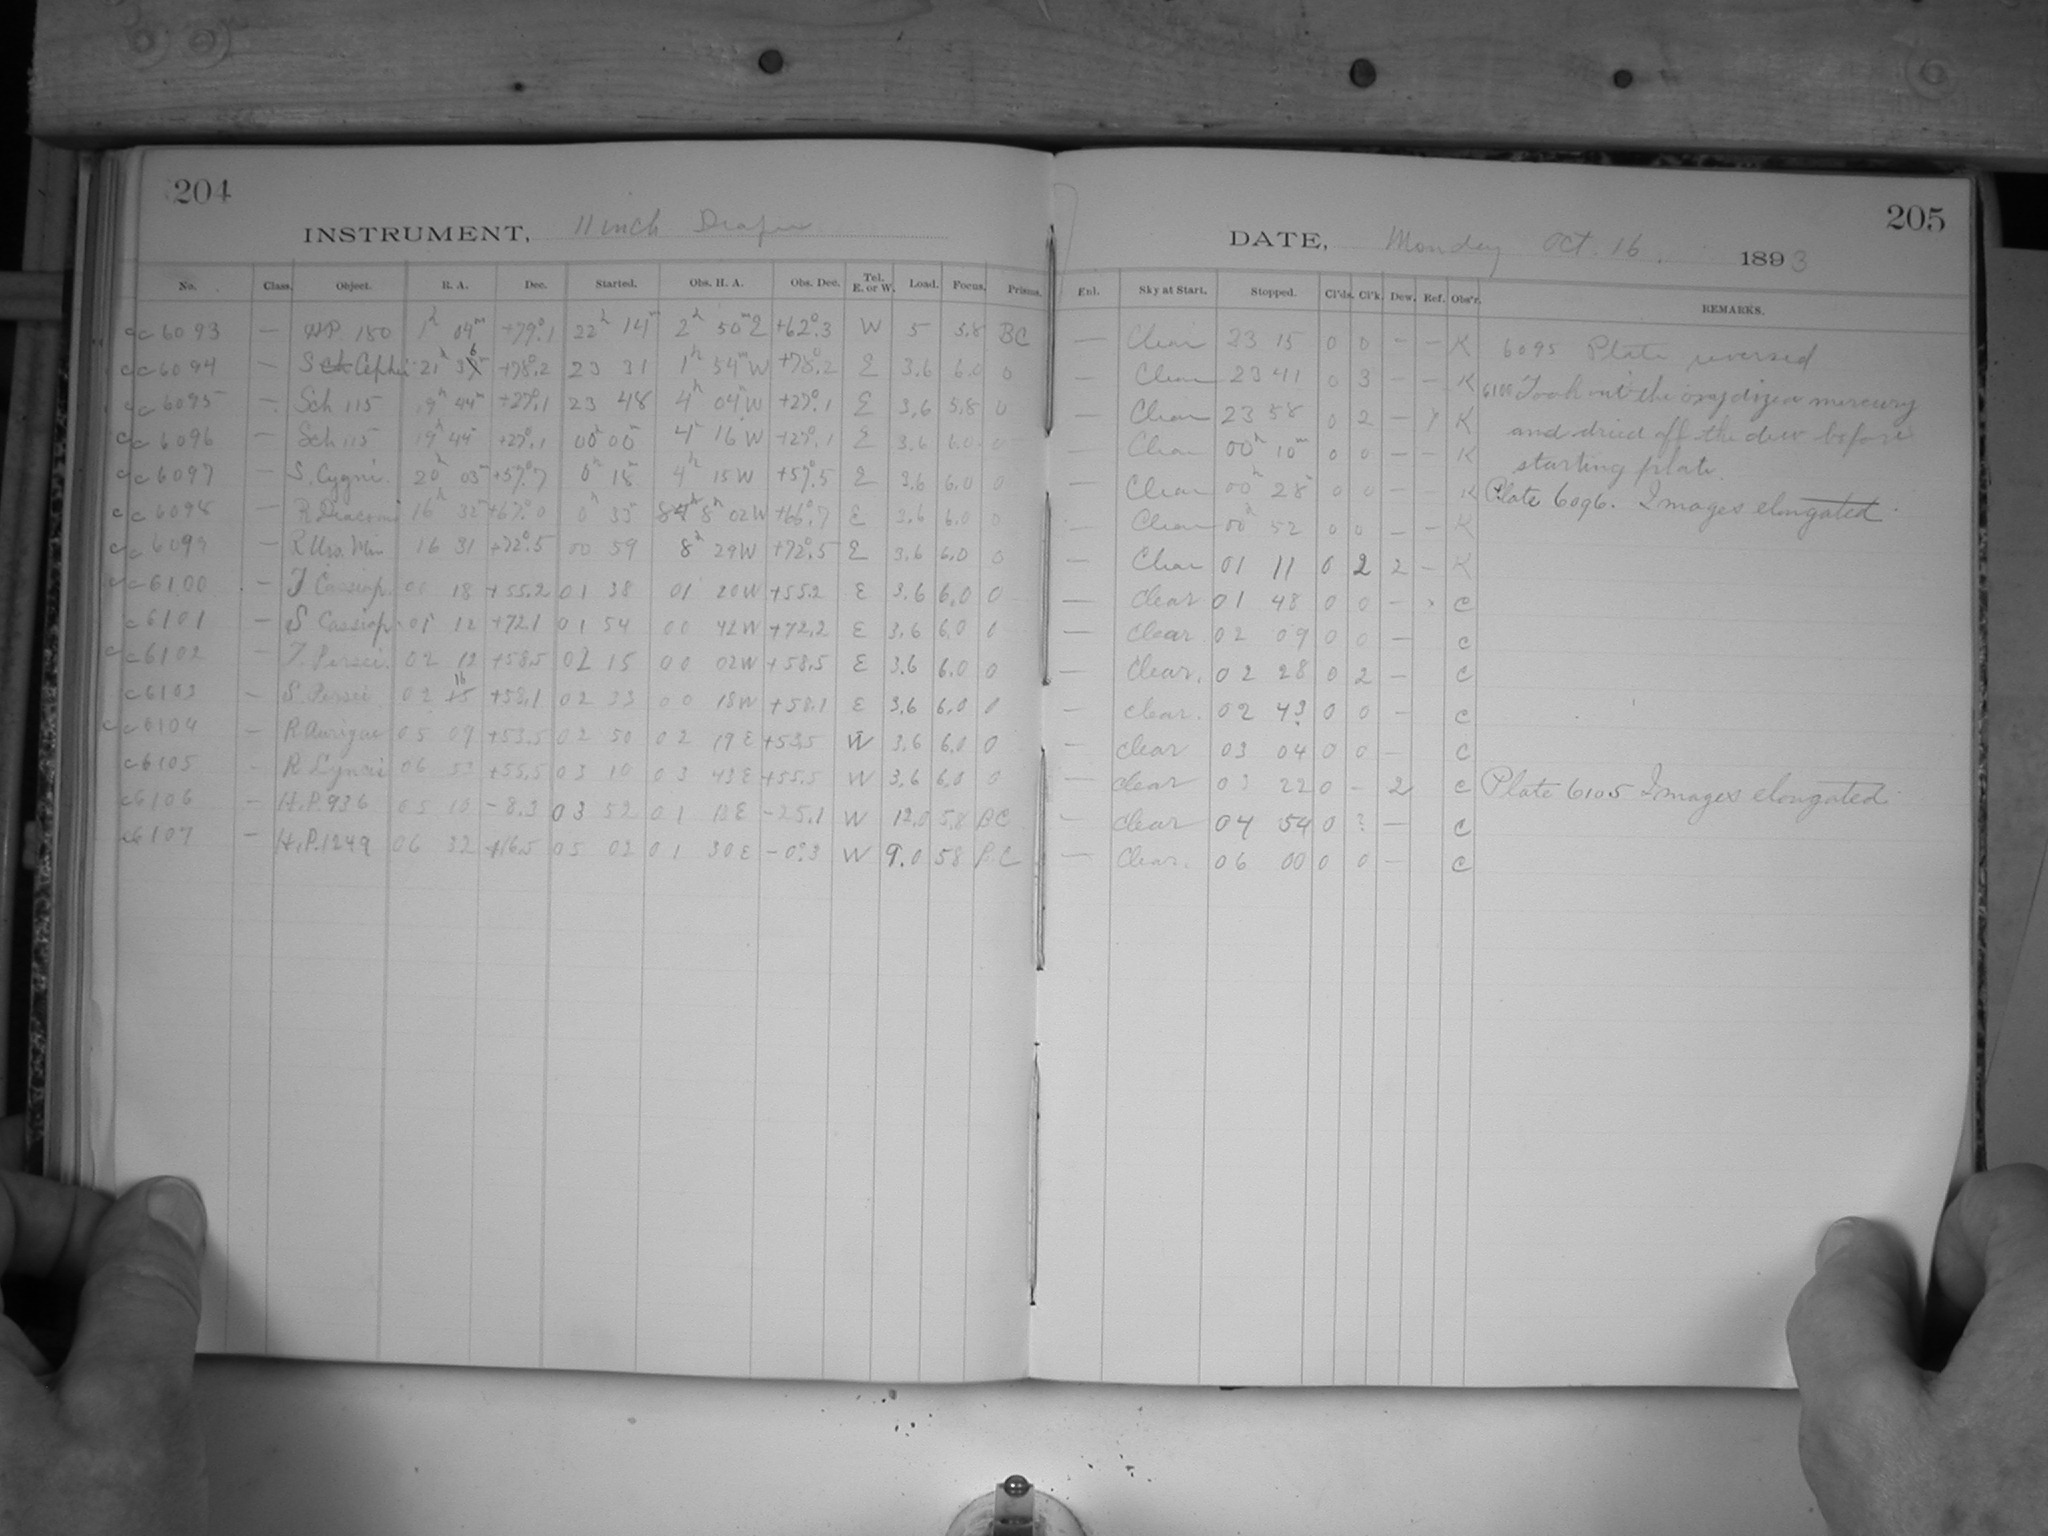 204
INSTRUMENT, 11 inch Draper
No. Class. Object. R. A. Dec. Started. Obs. H. A. Obs. Dec. Tel. E. or W. Load. Focus. Prisms.
c 6093 — H.P. 180 1h 04m +79°.1 22h 14m 2h 50m E +62°.3 W 5 5.8 BC
c 6094 — S Cephei 21h 36m +78°.2 23 31 1h 54m W +78°.2 E 3.6 6.0 0
c 6095 — Sch 115 19h 44m +27°.1 23 48 4h 04m W +27°.1 E 3.6 5.8 0
c 6096 — Sch 115 19h 44m +27°.1 00h 00m 4h 16 W +27°.1 E 3.6 6.0 0
c 6097 — S. Cygni 20h 03m +57°.7 0h 18m 4h 15 W +57°.5 E 3.6 6.0 0
c 6098 — R Draconis 16h 32m +67°.0 0h 35m 8h 02 W +66°.7 E 3.6 6.0 0
c 6099 — R Urs. Min 16 31 +72°.5 00 59 8h 29 W +72°.5 E 3.6 6.0 0
c 6100 — T Cassiop. 00 18 +55.2 01 38 01 20 W +55.2 E 3.6 6.0 0
c 6101 — S Cassiop. 01 12 +72.1 01 54 00 42 W +72.2 E 3.6 6.0 0
c 6102 — T. Persei. 02 12 +58.5 02 15 00 02 W +58.5 E 3.6 6.0 0
c 6103 — S. Persei 02 16 +58.1 02 33 00 18 W +58.1 E 3.6 6.0 0
c 6104 — R Aurigae 05 09 +53.5 02 50 02 19 E +53.5 W 3.6 6.0 0
c 6105 — R Lyncis 06 53 +55.5 03 10 03 43 E +55.5 W 3.6 6.0 0
c 6106 — H.P. 936 05 10 -8.3 03 52 01 18 E -25.1 W 12.0 5.8 BC
c 6107 — H.P. 1249 06 32 +16.5 05 02 01 30 E -0°.3 W 9.0 58 BC
205
DATE, Monday Oct. 16. 1893
Enl. Sky at Start. Stopped. Cl'ds. Cl'k. Dew. Ref. Obs'r. REMARKS.
— Clear 23 15 0 0 — — K 6095 Plate reversed
— Clear 23 41 0 3 — — K 6100 Took out the oxydized mercury
— Clear 23 58 0 2 — K and dried off the dew before
— Clear 00h 10m 0 0 — — K starting plate.
— Clear 00h 28 0 0 — — K Plate 6096. Images elongated
— Clear 00h 52 0 0 — K
— Clear 01 11 0 2 2 — K
— Clear 01 48 0 0 — C
— Clear 02 09 0 0 — C
— Clear. 02 28 0 2 — C
— clear. 02 43 0 0 — C
— clear 03 04 0 0 — C
— clear 03 22 0 — 2 C Plate 6105 Images elongated
— clear 04 54 0 ? — C
— Clear. 06 00 0 0 — C